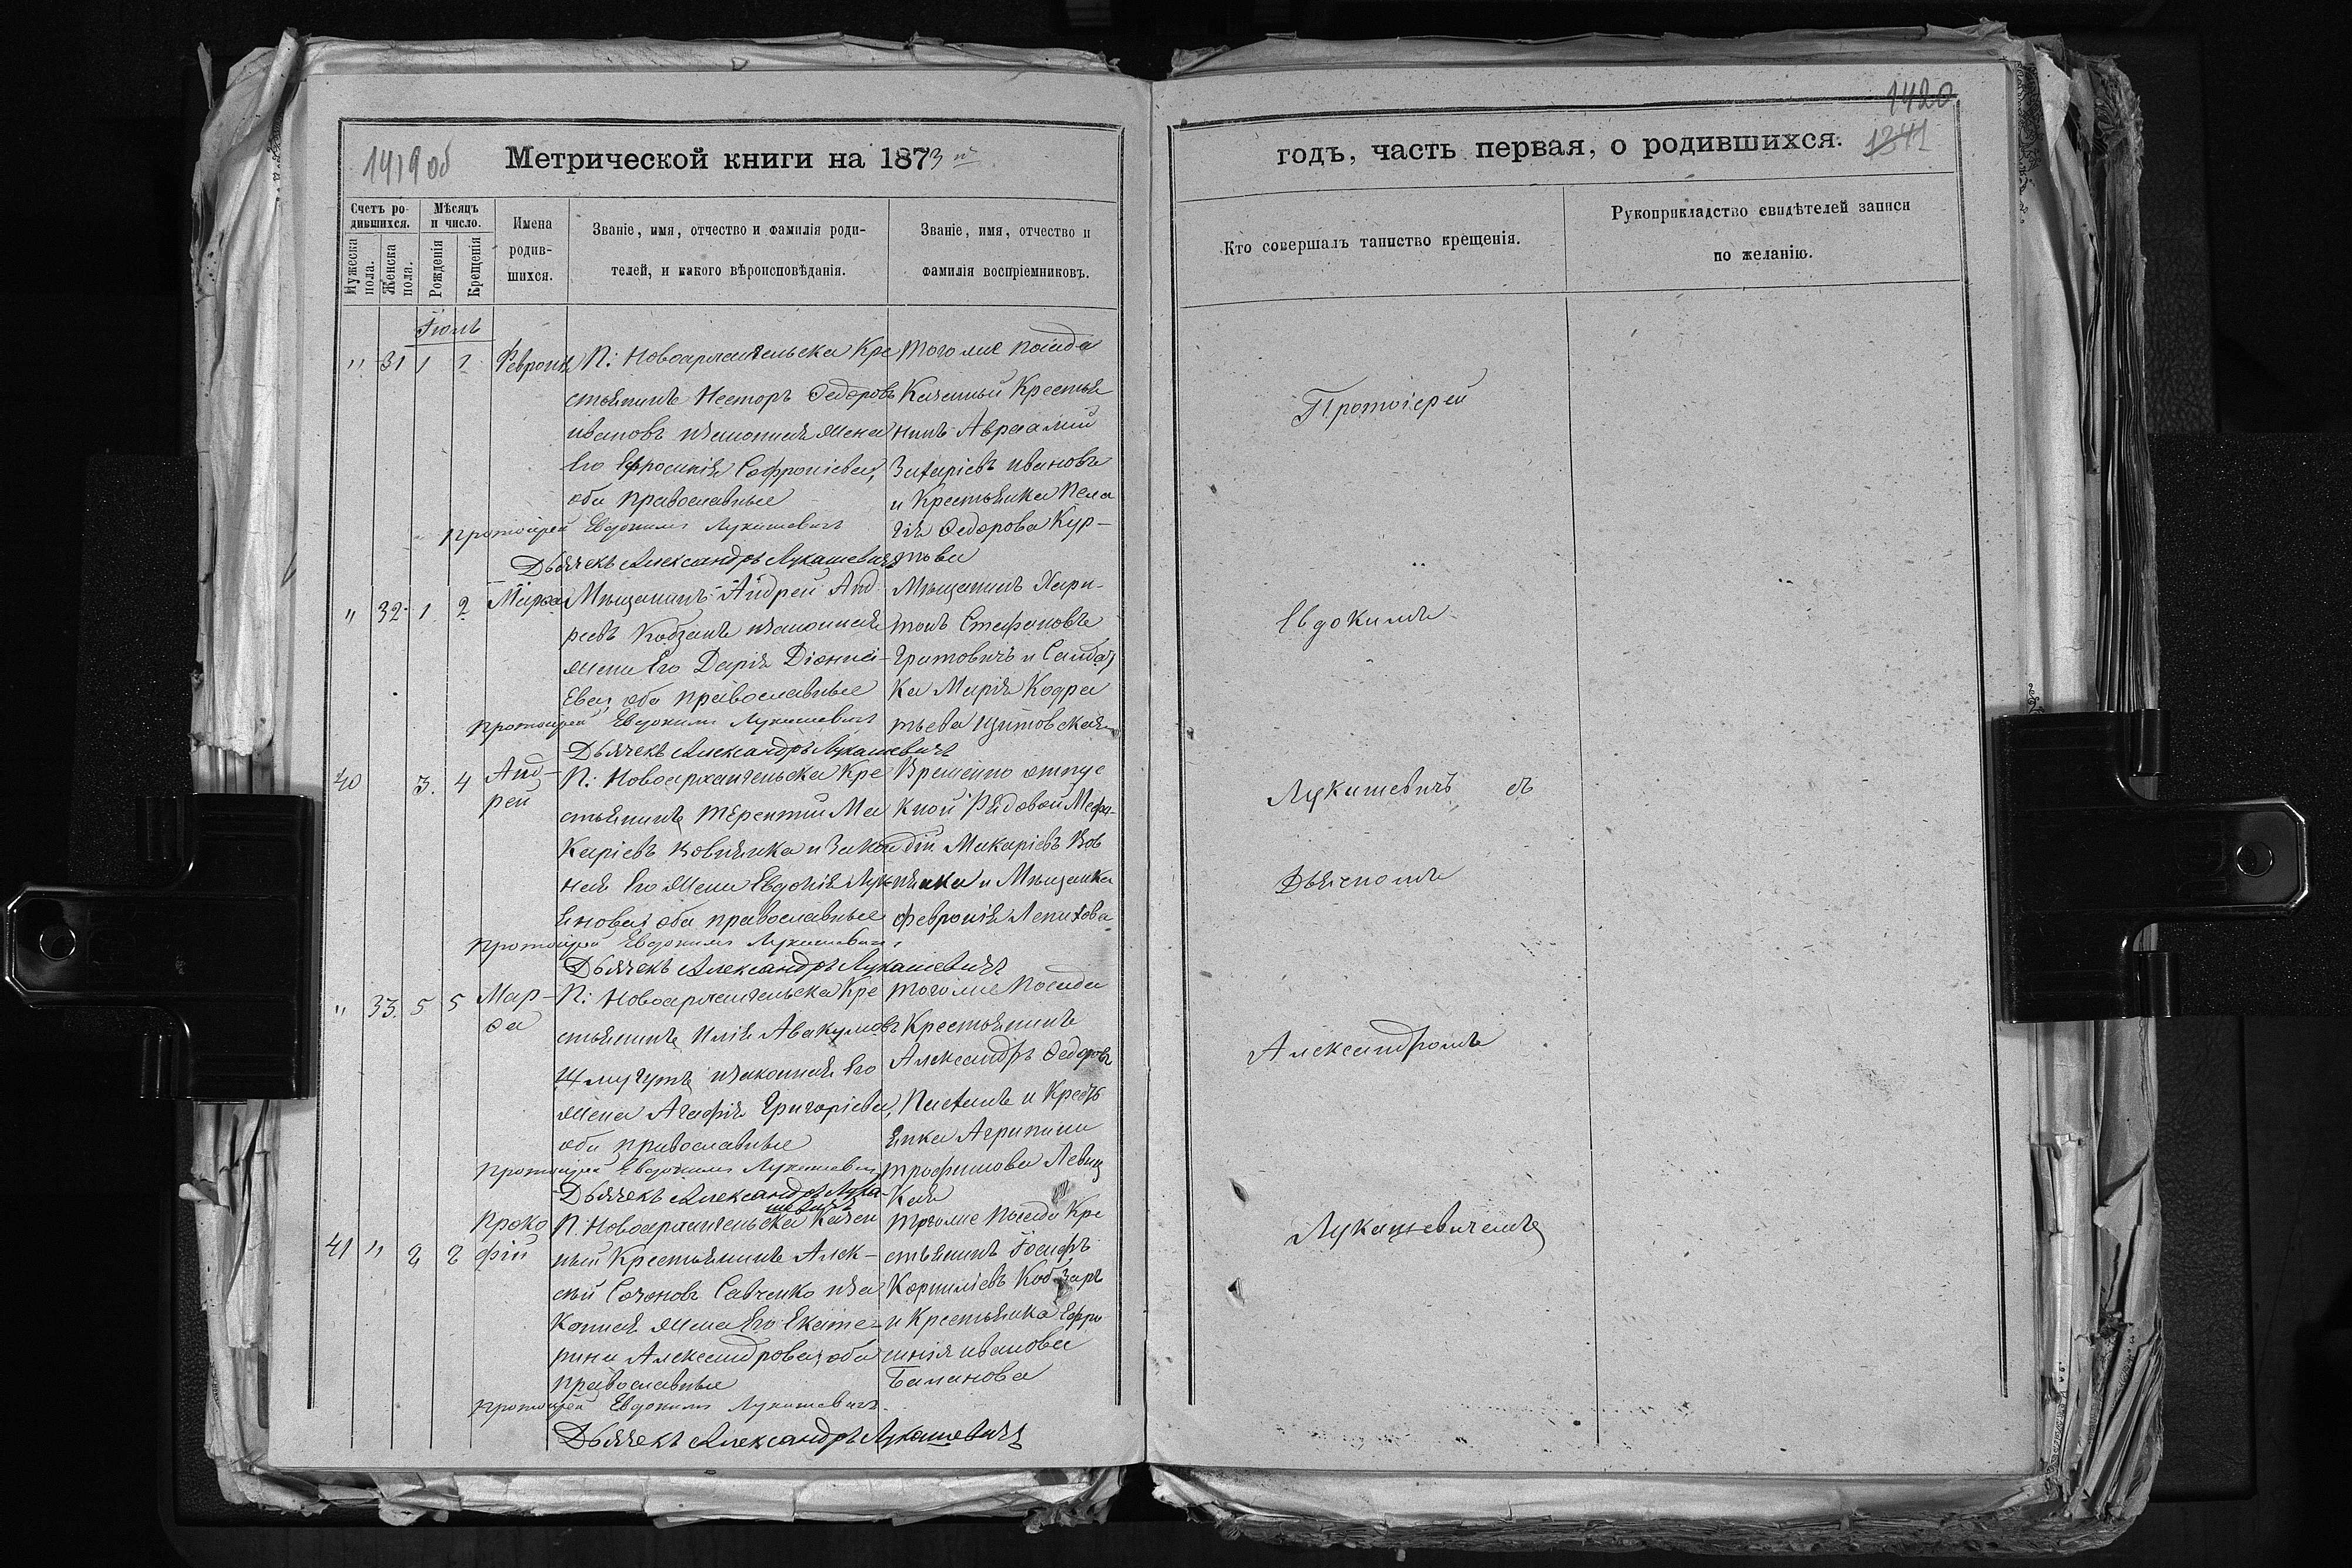 1419 об
Метрической книги на 1873 й
Счетъ родившихся.
Мужеска пола.
Женска пола.
Мѣсяцъ и число.
Рожденія
Крещенія
Имена родившихся.
Званіе, имя, отчество и фамилія родителей, и какого вѣроисповѣданія.
Званіе, имя, отчество и фамилія воспріемниковъ.
Іюль
" 31 1 1 Февронія
П: Новоархангельска Кре
стьянинъ Несторъ Ѳедоровъ
ивановъ изаконная жена
Его Ефросинія Софроніева,
оба православные
Протоіерей Евдокимъ Лукашевичъ
Дьячекъ Александръ Лукашевичъ
тогоже посада
Казенный Крестья
нинъ Авраамій
Захаріевъ ивановъ
и Крестьянка Пела
гія Ѳедорова Кур-
това
" 32 1 2 Марья
Мѣщанинъ Андрей Анд
реевъ Кобзанъ изаконная
жена Его Дарія Діонисі-
Ева, оба православные
Протоіерей Евдокимъ Лукашевичъ
Дьячекъ Александръ Лукашевичъ
Мѣщанинъ Хари-
тонъ Стефановъ
Гратовичъ и
ка Марія Кодра
тьева
40 3. 4 Анд-
рей
П: Новоархангельска Кре
стьянинъ терентій Ма
Каріевъ Вовнянка и Закон
ная Его жена Евдокія Лук
Янова, оба православные
Протоіерей Евдокимъ Лукашевичъ
Дьячекъ Александръ Лукашевичъ
Временно отпус
кной Рядовой Мефо-
дій Макаріевъ Вов
нянка и Мѣщанка
Февронія Лепихова
" 33. 5 5 Мар-
ѳа
П: Новоархангельска Кре
стьянинъ Илія Авакумовъ
изаконная Его
жена Агафія Григоріева,
оба православные
Протоіерей Евдокимъ Лукашевичъ
Дьячекъ Александръ Лука-
шевичъ
тогоже Посада
Крестьянинъ
Александръ Ѳедоровъ
и Кресть
янка Агрипина
трофимова Левиц
Кая
41 " 2 2 Проко
фій
П. Новоархангельска Казен
ный Крестьянинъ Алек-
сѣй Созоновъ Савченко иза
Конная жена Его Екате-
рина Александрова, оба
православные
Протоіерей Евдокимъ Лукашевичъ.
Дьячекъ Александръ Лукашевичъ
тогоже Посада Кре
стьянинъ Іосифъ
Корниліевъ Кобзарь
и Крестьянка Ефро
синія иванова
Баланова
1420
1341
годъ, часть первая, о родившихся.
Кто совершалъ таинство крещенія.
Рукоприкладство свидѣтелей записи по желанію.
Протоіерей
Евдокимъ
Лукашевичъ съ
Дьячкомъ
Александромъ
Лукашевичемъ